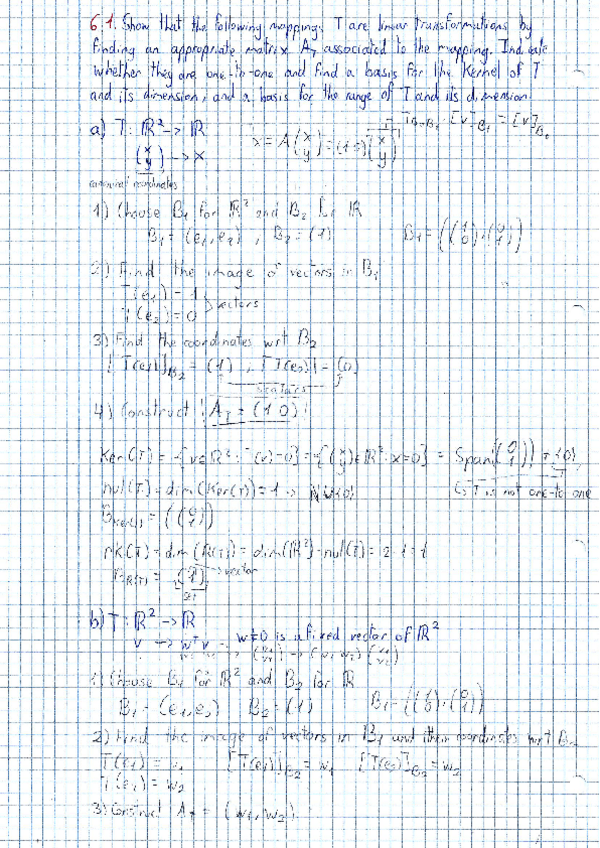 6.1. Show that the following mappings T are linear transformations by
finding an appropriate matrix A_T associated to the mapping. Indicate
whether they are one-to-one and find a basis for the Kernel of T
and its dimension, and a basis for the range of T and its dimension.
a) T: ℝ² -> ℝ x = A(x y) = (1 0)(x y) T_{B1,B2} · [v]_{B1} = [v]_{B2}
(x y) -> x
canonical coordinates
1) Choose B₁ for ℝ² and B₂ for ℝ
B₁ = (e₁,e₂) , B₂ = (1) B₁ = ((1 0),(0 1))
2) Find the image of vectors in B₁
T(e₁) = 1
T(e₂) = 0 vectors
3) Find the coordinates wrt B₂
[T(e₁)]_{B₂} = (1) , [T(e₂)] = (0)
scalars
4) Construct A_T = (1 0)
Ker(T) = {v∈ℝ² : T(v)=0} = {(x y)∈ℝ² : x=0} = Span((0 1)) ≠ {0}
nul(T) = dim(Ker(T)) = 1 -> T is not one-to one
B_{Ker(T)} = ((0 1))
rk(T) = dim(R(T)) = dim(ℝ²) - nul(T) = 2-1=1
B_{R(T)} = (1) -> vector
set
b) T: ℝ² -> ℝ
v -> wᵀv w≠0 is a fixed vector of ℝ²
1) Choose B₁ for ℝ² and B₂ for ℝ
B₁ = (e₁,e₂) B₂ = (1) B₁ = ((1 0),(0 1))
2) Find the image of vectors in B₁ and their coordinates wrt B₂
T(e₁) = w₁ [T(e₁)]_{B₂} = w₁ [T(e₂)]_{B₂} = w₂
T(e₂) = w₂
3) Construct A_T = (w₁, w₂)